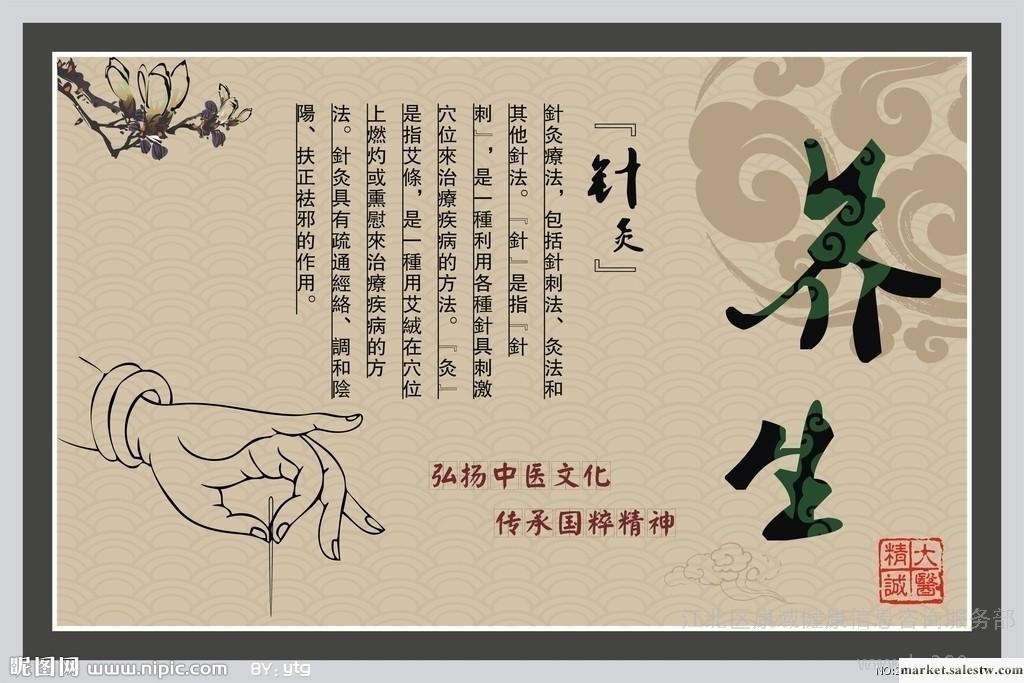 养生
『針灸』
針灸療法，包括針刺法、灸法和
其他針法。『針』是指『針
刺』，是一種利用各種針具刺激
穴位來治療疾病的方法。『灸』
是指艾條，是一種用艾絨在穴位
上燃灼或熏慰來治療疾病的方
法。針灸具有疏通經絡、調和陰
陽、扶正祛邪的作用。
弘扬中医文化
传承国粹精神
大醫
精誠
昵图网 www.nipic.com BY: ytg
market.salestw.com